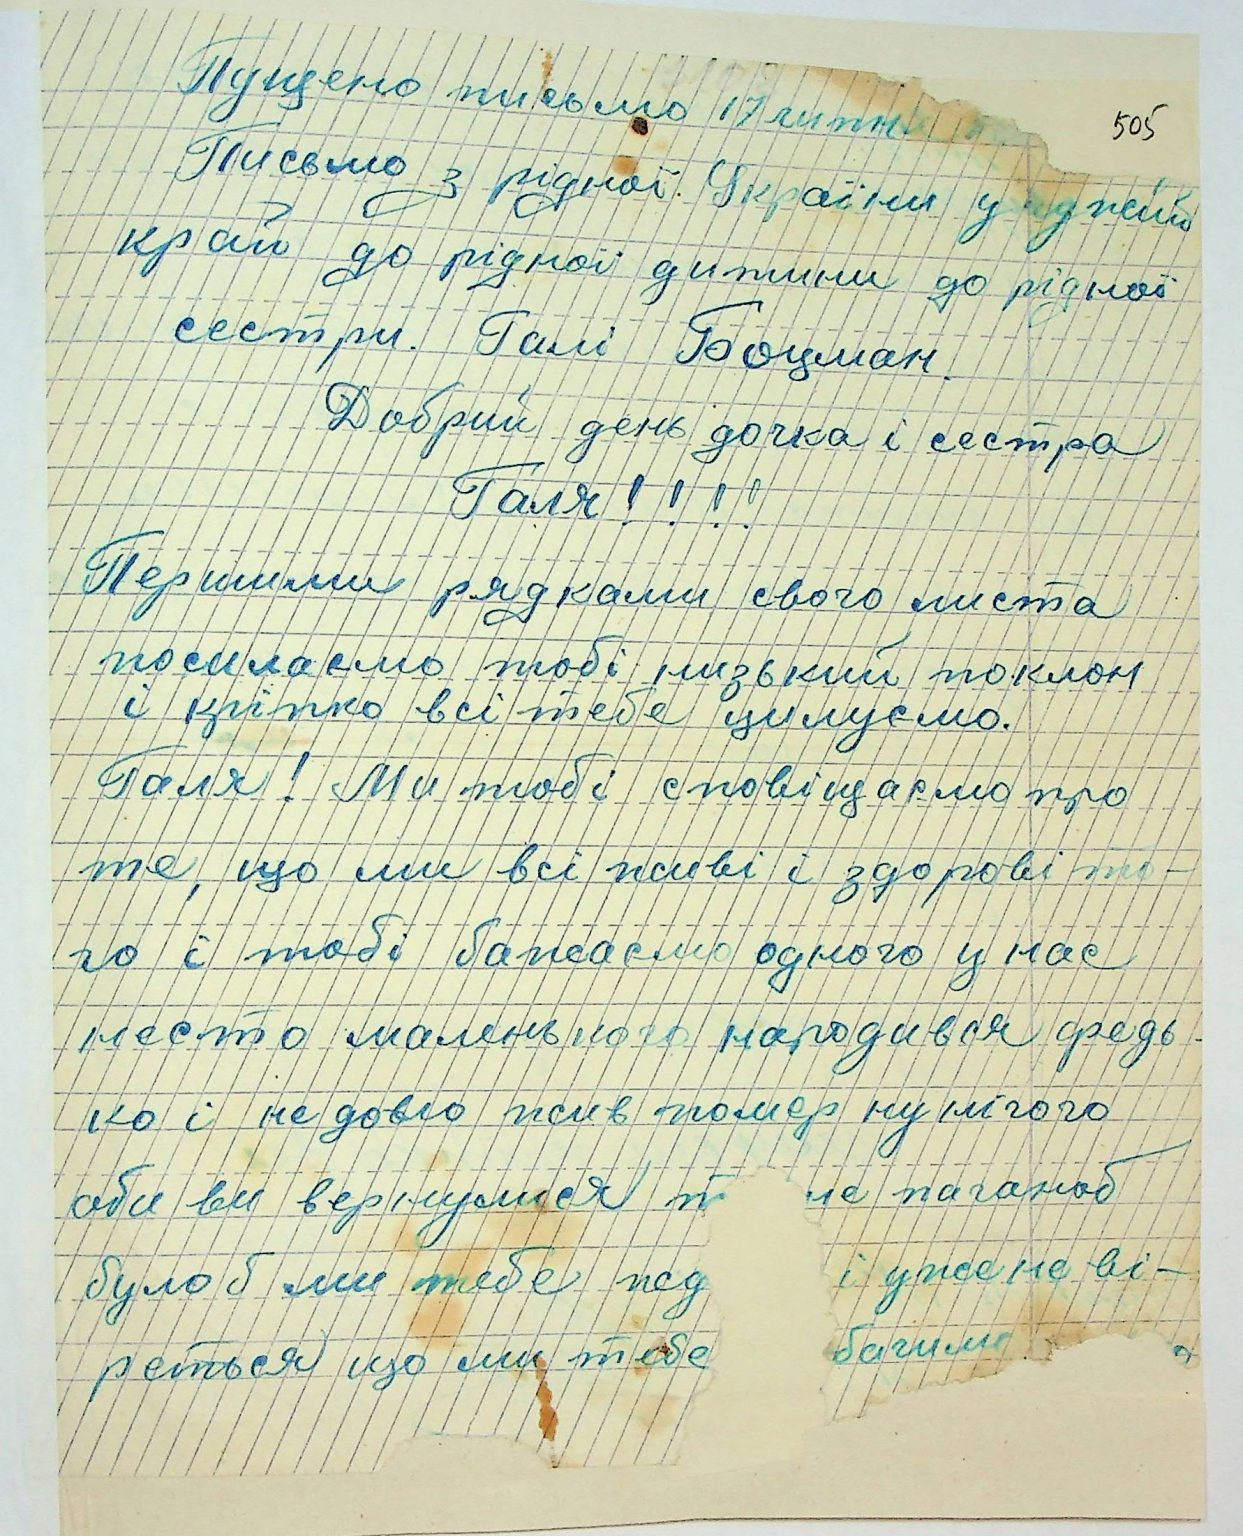 505
Пущено письмо 17 липн
Письмо з рідної України у чужий
край до рідної дитини до рідної
сестри. Галі Боцман.
Добрий день дочка і сестра
Галя!!!!
Першими рядками свого листа
посилаємо тобі низький поклон
і кріпко всі тебе цилуємо.
Галя! Ми тобі сповіщаємо про
те, що ми всі живі і здорові то-
го і тобі бажаємо одного у нас
нєсто маленького народився федь-
ко і не довго жив помер ну нічого
аби ви вернулися т не паганоб
було б ми тебе жд і уже не ві-
реться що ми тебе бачим